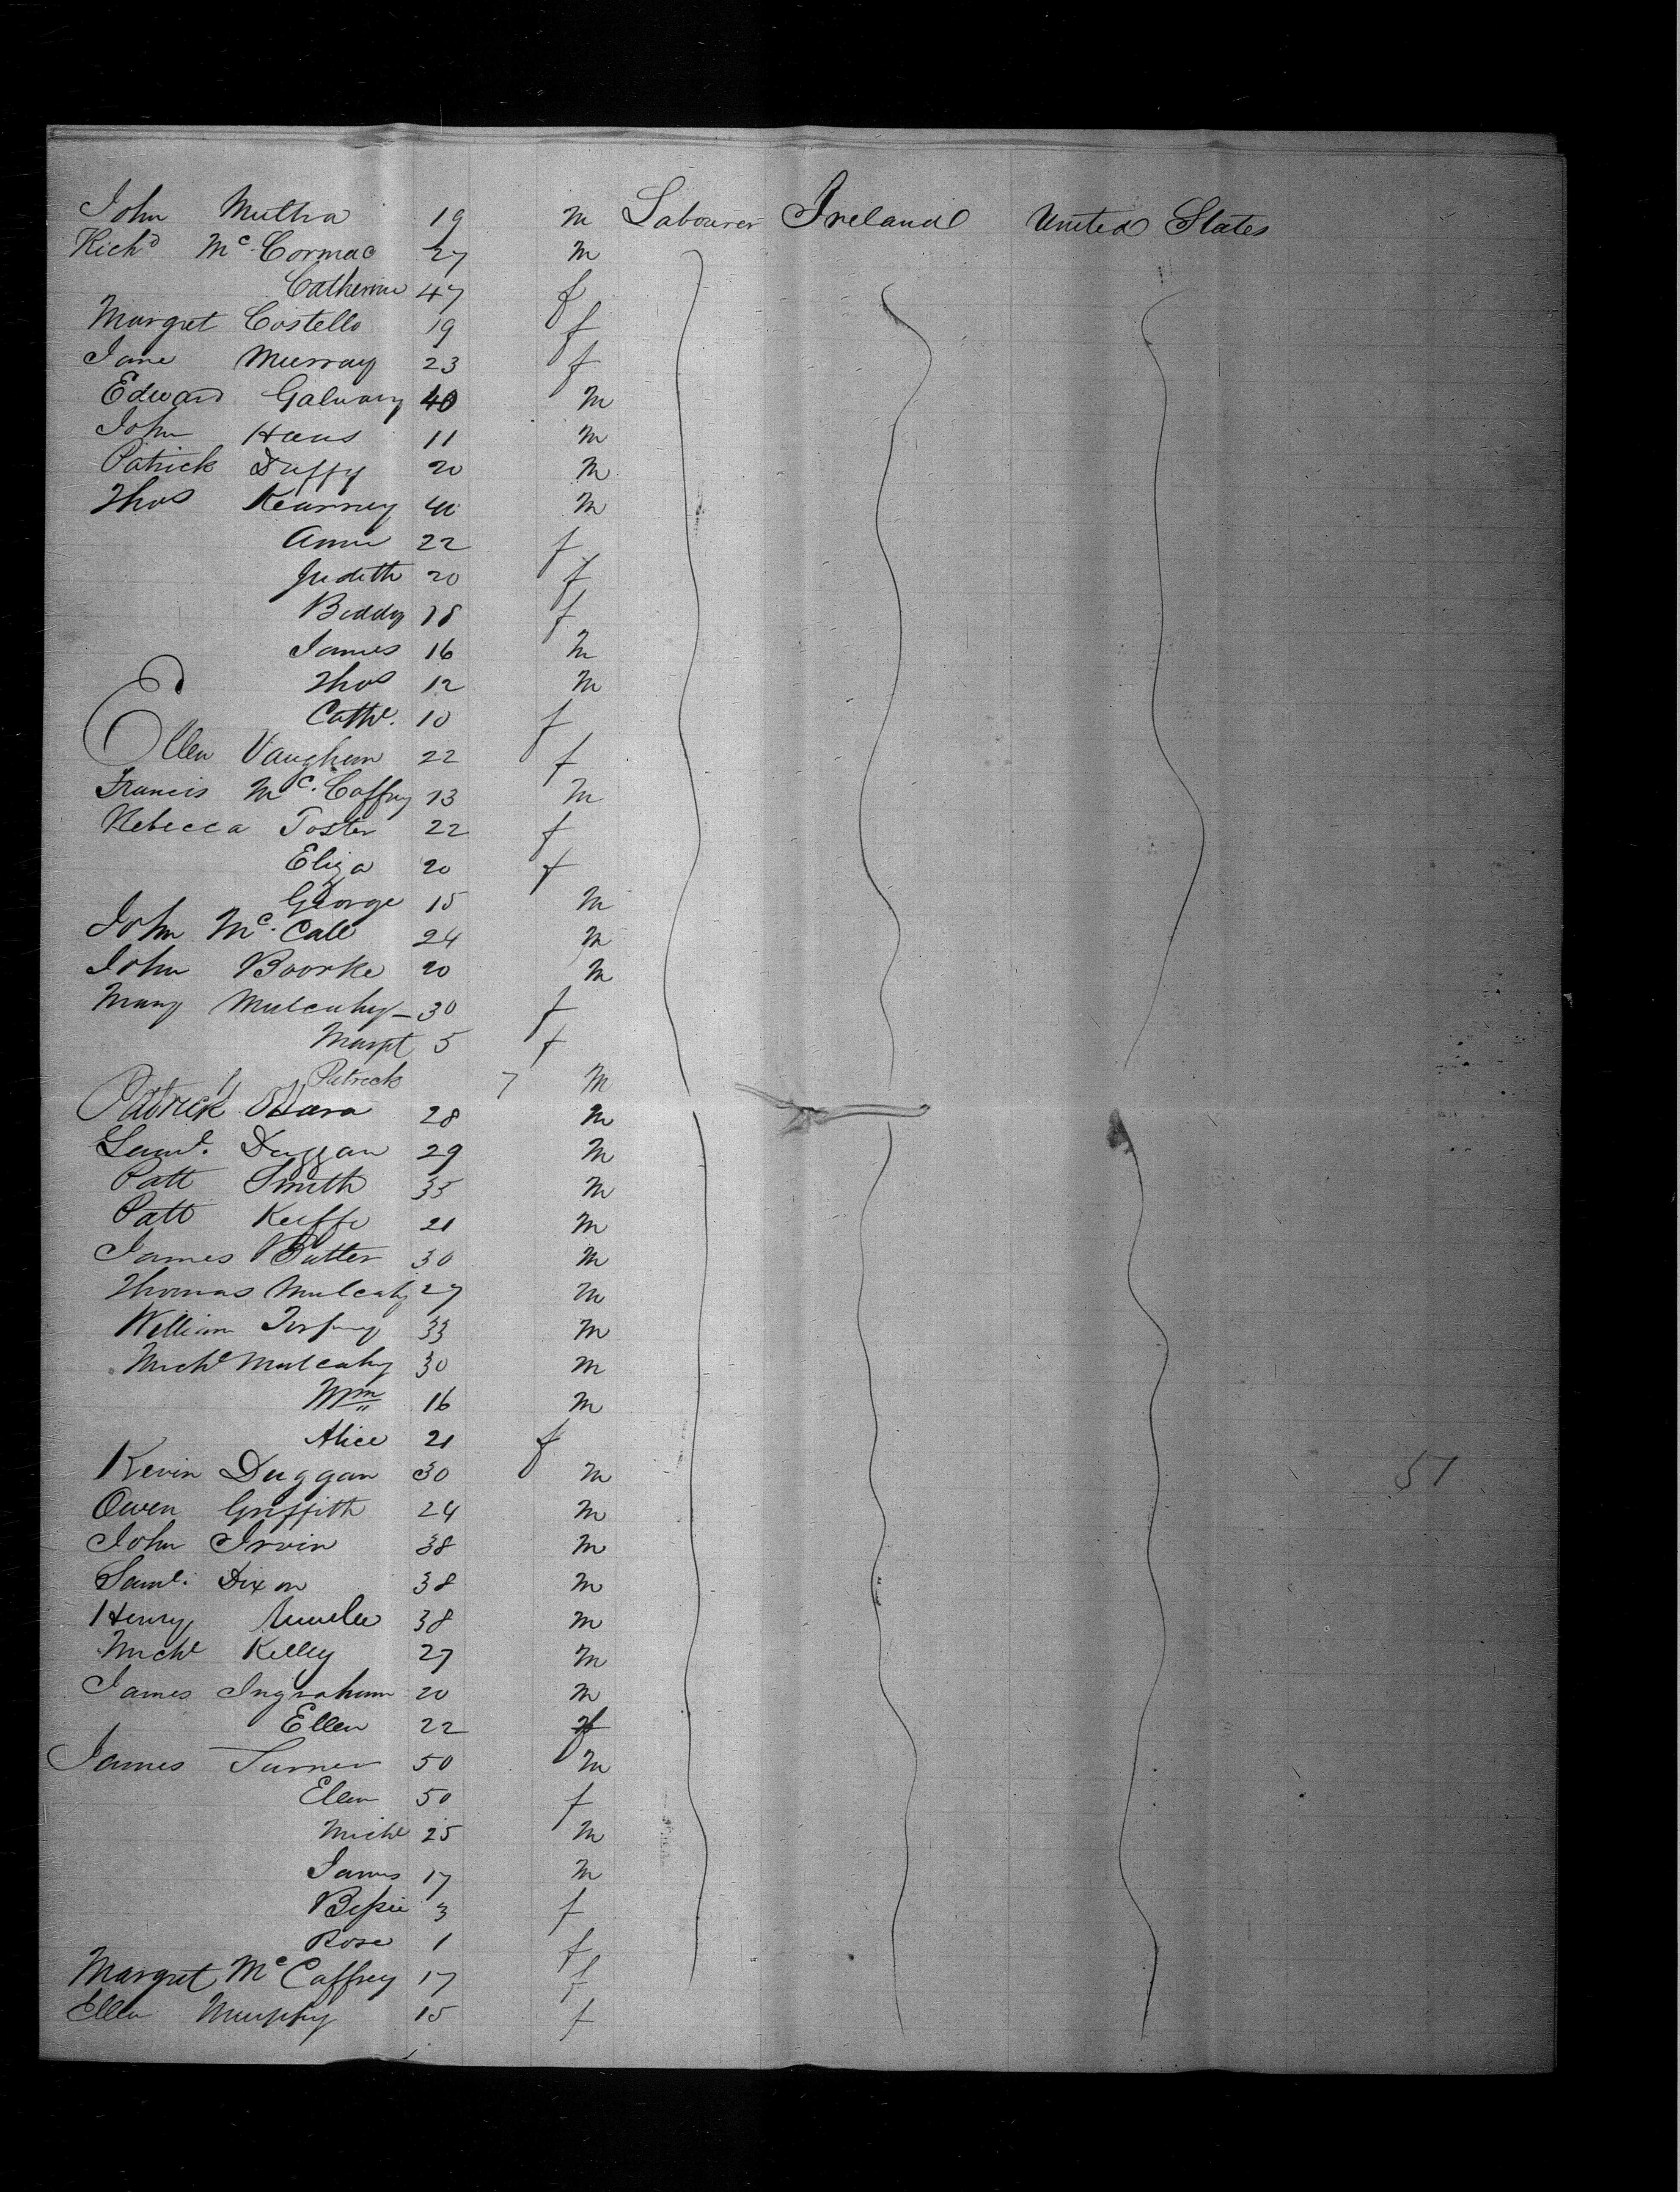 John 19 m Labourer Ireland United States
Richd Mc. Cormac 27 m
Catherine 47 f
Margret Costello 19 f
Jane Murray 23 f
Edward Galvary 40 m
John 11 m
Patrick Duffy 20 m
Thos Kearney 40 m
Anne 22 f
Judith 20 f
Biddy 18 f
James 16 m
Thos 12 m
Cathe. 10 f
Ellen Vaughan 22 f
Francis Mc. Caffrey 13 m
Rebecca Foster 22 f
Eliza 20 f
George 15 m
John Mc. Call 24 m
John Boorke 20 m
Mary Mulcahy 30 f
Margt 5 f
Patrick 7 m
Patrick OHara 28 m
Saml. Duggan 29 m
Patt Smith 35 m
Patt Keiffe 21 m
James Butler 30 m
Thomas Mulcahy 27 m
William 33 m
Michl Mulcahy 30 m
Wm 16 m
Alice 21 f
Kevin Duggan 30 m 51
Owen Griffith 24 m
John Irvin 38 m
Saml. Dixon 38 m
Henry 38 m
Michl Kelley 27 m
James Ingraham 20 m
Ellen 22 f
James Turner 50 m
Ellen 50 f
Michl 25 m
James 17 m
Bessie 3 f
Rose 1 f
Margret Mc Caffrey 17 f
Ellen Murphy 15 f